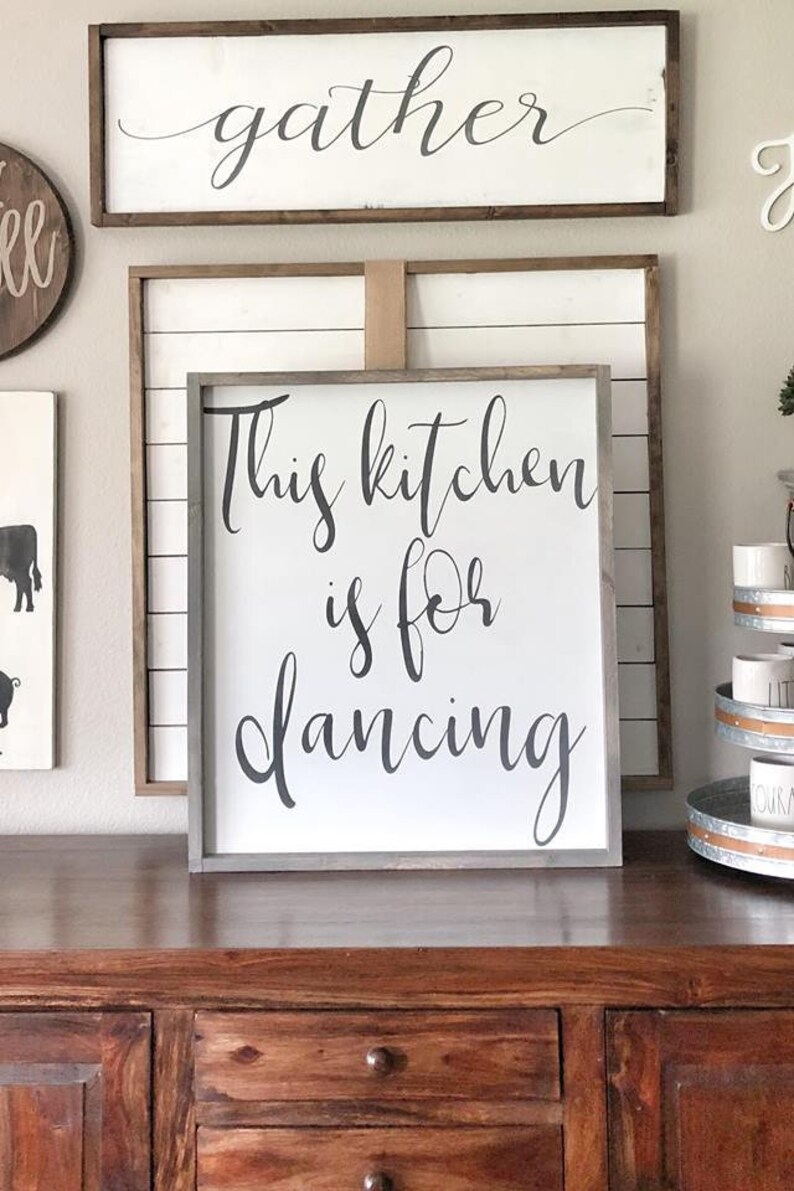 gather
This kitchen
is for
dancing